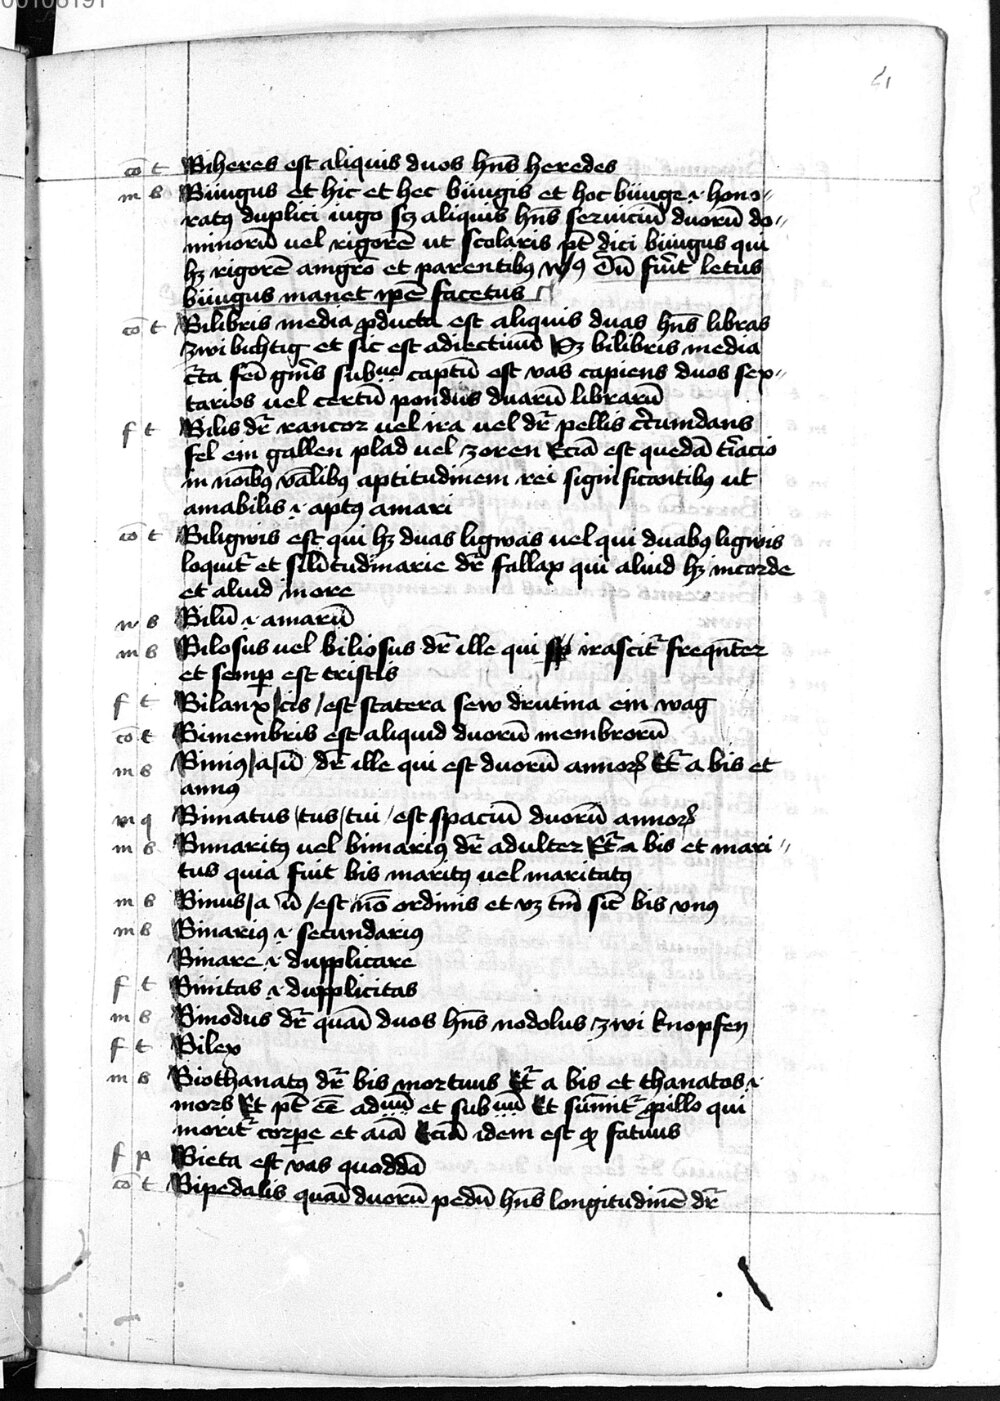 00108191
co t Biheres est aliquis duos hn̄s heredes
m b Biiugus et hic et hec biiugis et hoc biiuge .i. hono-
ratꝯ duplici iugo scꝫ aliquis hn̄s seruiciū duorū do-
minorū uel rigorē ut scolaris pt̄ dici biiugus qui
hꝫ rigorē a mgr̄o et parentibꝯ Dū fuīt letus
biiugus manet ip̄e facetus
co t Bilibris media ꝓducta est aliquis duas hn̄s libras
zwibichtig et sic est adiectiuū Sꝫ bilibris media
cr̄ta fēi gn̄is subue captū est vas capiens duos sex-
tarios uel certū pondus duarū librarū
f t Bilis dr̄ rancor uel ira uel dr̄ pellis cr̄cumdans
fel ein gallen plad uel zoren Eciā est quedā tr̄acio
in noībꝯ v̄alibꝯ aptitudinem rei significantibꝯ ut
amabilis .i. aptꝯ amari
co t Biligwis est qui hꝫ duas ligwas uel qui duabꝯ ligwis
loquit᷑ et sili̅tudinarie dr̄ fallax qui aliud hꝫ in corde
et aliud in ore
n b Bilū .i. amarū
m b Bilosus uel biliosus dr̄ ille qui irascit᷑ freqn̄ter
et semꝑ est tristis
f t Bilanx / cis / est statera sew drutina ein wag
co t Bimembris est aliquid duorū membrorū
m b Bimꝯ / a / ū / dr̄ ille qui est duorū annorꝝ Et᷑ a bis et
annꝯ
m q Bimatus / tus / tui / est spaciū duorū annorꝝ
m b Bimaritꝯ uel bimariꝯ dr̄ adulter Et᷑ a bis et mari-
tus quia fuit bis maritꝯ uel maritatꝯ
m b Binus / a ū / est nō ordinis et vꝫ tm̄ sic̄ bis vnꝯ
m b Binariꝯ .i. secundariꝯ
Binare .i. dupplicare
f t Binitas .i. dupplicitas
m b Binodus dr̄ quāi duos hn̄s nodolus zwi knopfen
f t Bilex
m b Biothanatꝯ dr̄ bis mortuus Et᷑ a bis et thanatos .i.
mors Et pt̄ ēē adiuū et subuū Et sūmit᷑ ꝓ illo qui
morit᷑ corpe et aīā Eciā idem est ꝙ fatuus
f p Bieta est vas quoddā
co t Bipedalis quāi duorū pedū hn̄s longitudinē dr̄